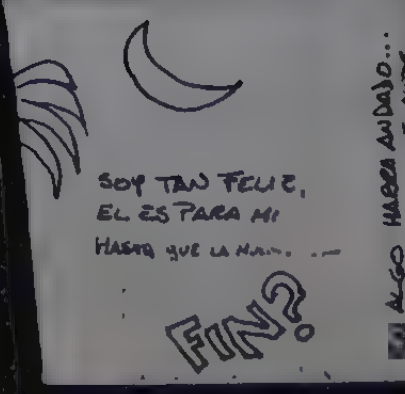 SOY TAN FELIZ,
EL ES PARA MI
HASTA QUE LA
FIN?
ALGO HABRA ANDADO...